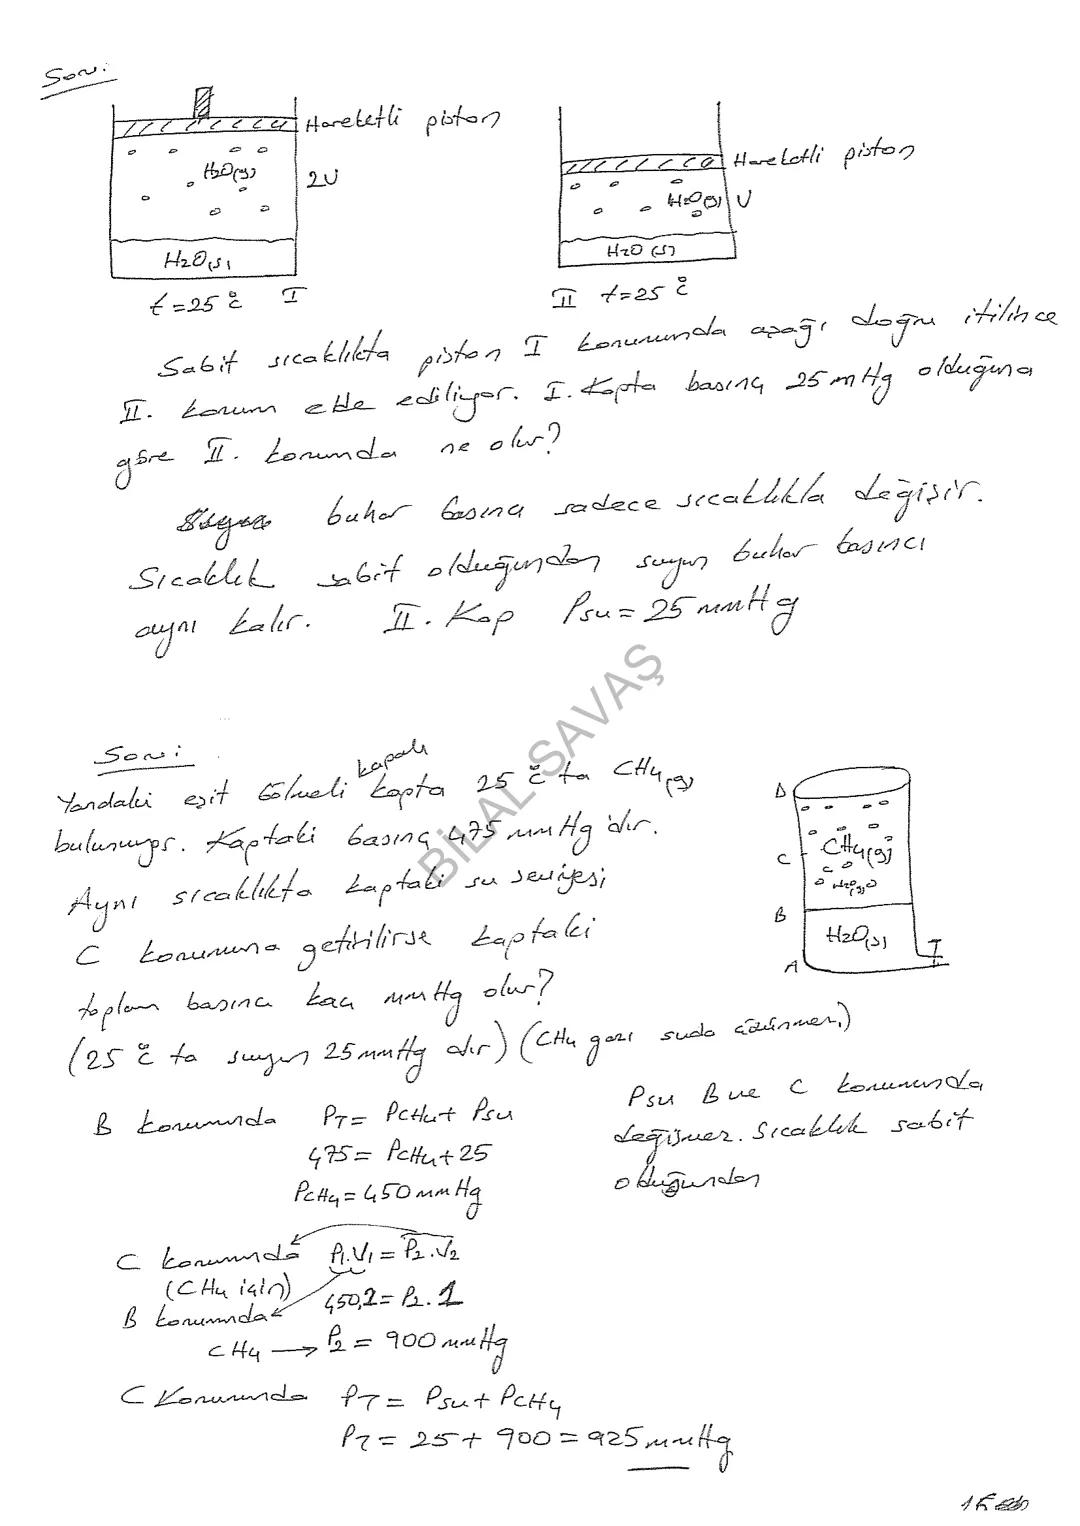 Soru:
Hareketli piston
H2O(g)
2V
H2O(s)
t=25 °C I
Hareketli piston
H2O(g) V
H2O(s)
II t=25 °C
Sabit sıcaklıkta piston I konumunda aşağı doğru itilince
II. konum elde ediliyor. I. Kapta basınç 25 mHg olduğuna
göre II. konumda ne olur?
buhar basıncı sadece sıcaklıkla değişir.
Sıcaklık sabit olduğundan suyun buhar basıncı
aynı kalır. II. Kap Psu = 25 mmHg
BİLAL SAVAŞ
Soru:
Yandaki eşit bölmeli kapalı kapta 25 °C ta CH4(g)
bulunuyor. Kaptaki basınç 475 mmHg'dır.
Aynı sıcaklıkta kaptaki su seviyesi
C konumuna getirilirse kaptaki
toplam basıncı kaç mmHg olur?
(25 °C ta suyun 25 mmHg dır) (CH4 gazı suda çözünmez.)
D
C
CH4(g)
H2O(g)
B
H2O(s)
A
B konumunda PT = PCH4 + Psu
475 = PCH4 + 25
PCH4 = 450 mmHg
Psu B ve C konumunda
değişmez. Sıcaklık sabit
olduğundan
C konumunda P1.V1 = P2.V2
(CH4 için)
B konumunda 450.2 = P2.1
CH4 → P2 = 900 mmHg
C Konumunda PT = Psu + PCH4
PT = 25 + 900 = 925 mmHg